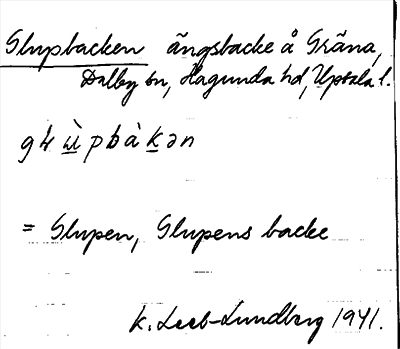 Glupbacken ängsbacke å Gräna,
Dalby sn, Hagunda hd, Uppsala l.
= Glupen, Glupens backe
K. Leeb-Lundberg 1941.